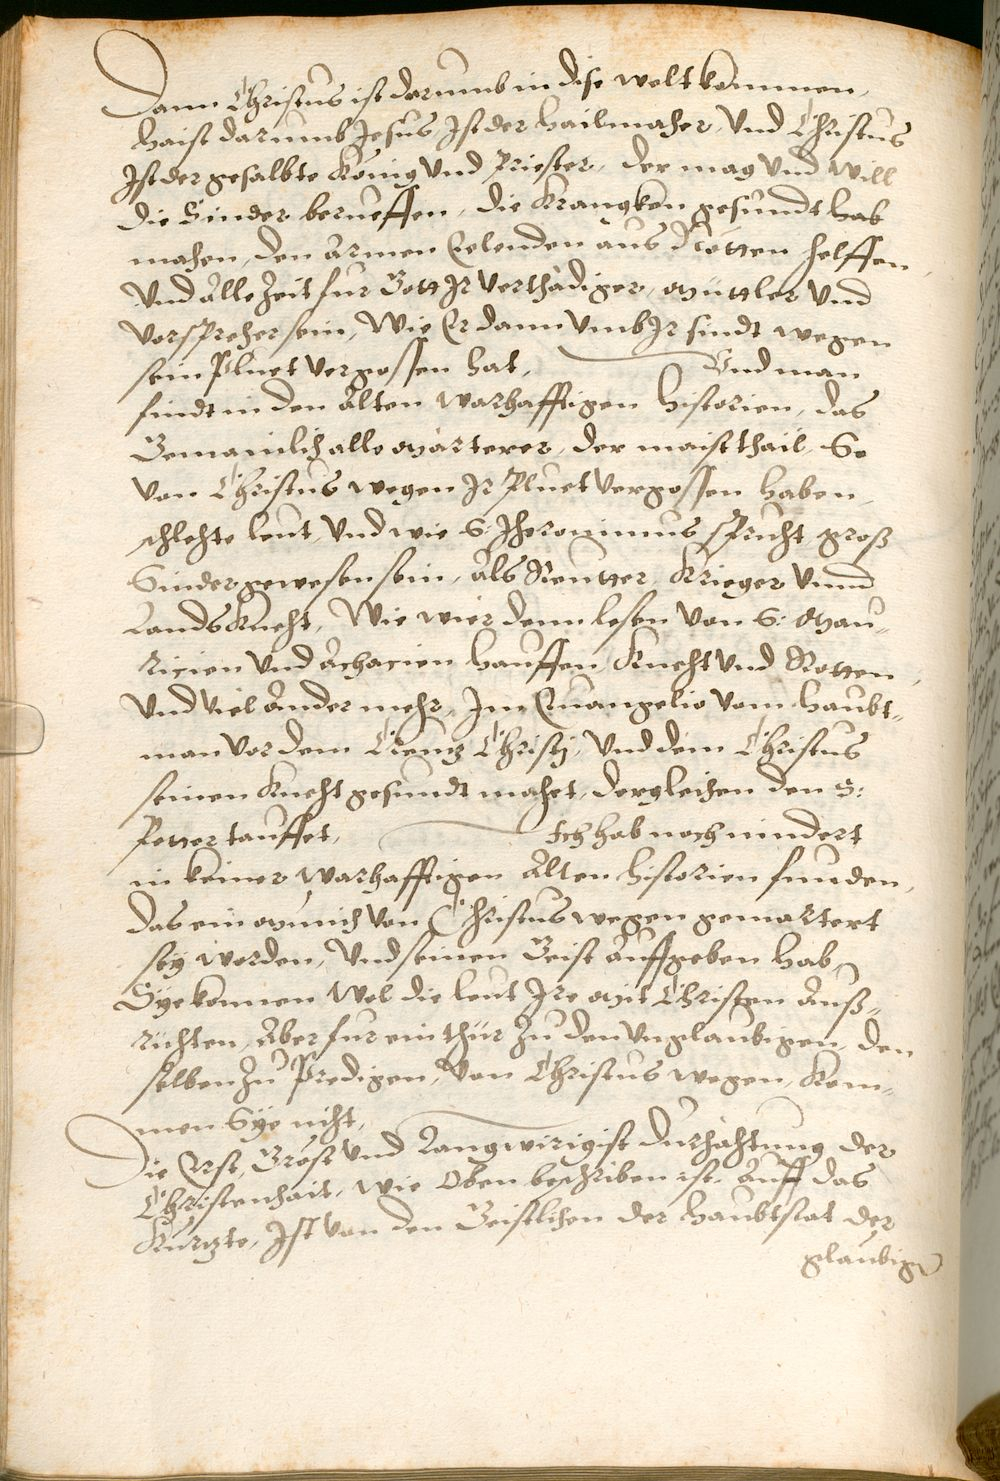 Dann Christus ist darumb in dise welt kommen,
haist darumb Jesus, Ist der hailmaher, Und Christus
Ist der gesalbte König Und Priester, der mag Und will
die Sinder berueffen, die Krangken gesundt hab
mahen, den Armen Eelenden aus Nötten helffen,
Und Alle Zeit fur Gott Ir Verthädiger, Mittler Und
Vorspreher sein, Wie Er dann Umb Ir sindt wegen
sein Pluet Vergossen hat, Und man
findt in den Alten Warhafftigen historien, das
Gemainlich alle Märterer, der maist thail, So
Von Christus wegen Ir Pluet Vergossen haben,
schlehte leut, Und wie S: Jheronimus spricht, groß
Sinder gewesen sein, Als Reutter, Krieger Unnd
Landsknecht, Wie wier denn lesen Von S: Mau-
ricien Und Achacien hauffen Knecht Und Rotten,
Und Viel Ander mehr, Im Euangelio Vom haubt-
man Vor dem Creutz Christj, Und dem Christus
seinen Knecht gesundt mahet, dergleichen den S:
Petter tauffet, Ich hab noch nindert
in keiner Warhafftigen Alten historien funden,
das ein Munich Von Christus wegen gemartert
sey worden, Und seinen Geist Auffgeben hab,
Sye konnen Wol die leut Ire Mit Christen Auß-
richten, Aber fur ein thür Zu den Unglaubigen, den
selben Zu Predigen, Von Christus wegen, Kom-
men Sye nicht,
Die Erst, Gröst Und Langwirigist durhähtung der
Christenhait, wie Oben beschriben ist, Auff das
Kurtzte, Ist Von den Geistlichen der haubtstat der
glaubigen